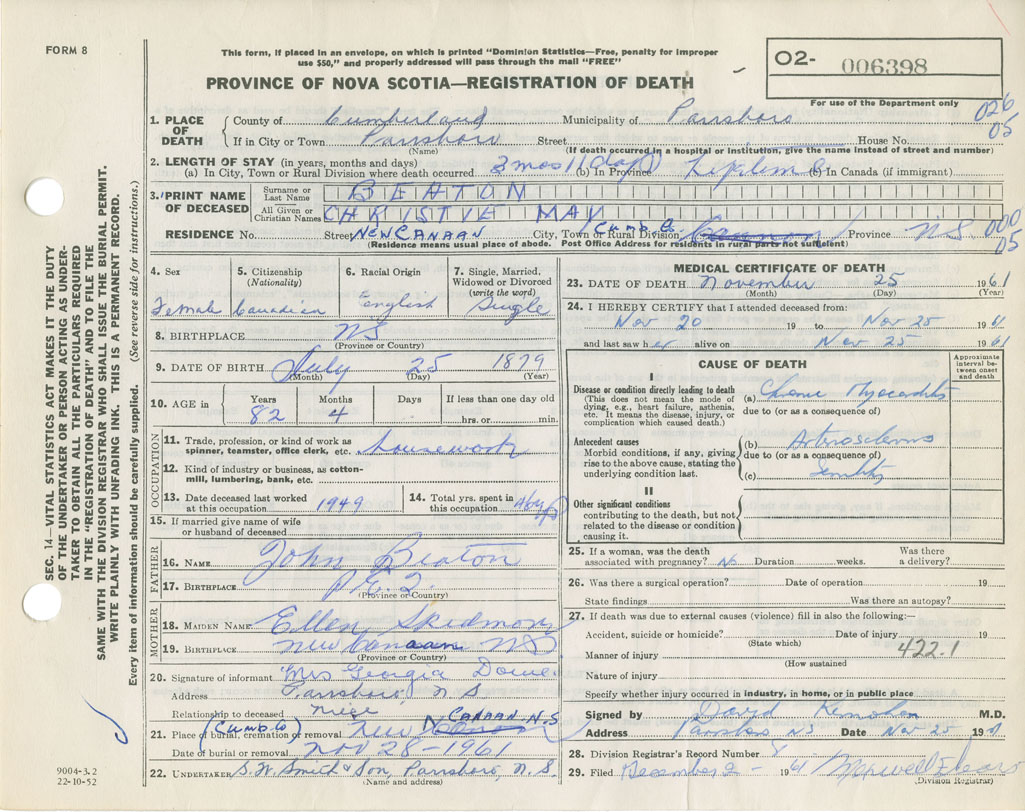 FORM 8
This form, if placed in an envelope, on which is printed "Dominion Statistics—Free, penalty for improper
use $50," and properly addressed will pass through the mail "FREE"
PROVINCE OF NOVA SCOTIA—REGISTRATION OF DEATH
02- 006398
For use of the Department only
026
05
1. PLACE OF DEATH
County of Cumberland Municipality of Parrsboro
If in City or Town Parrsboro Street House No.
(Name) (If death occurred in a hospital or institution, give the name instead of street and number)
2. LENGTH OF STAY (in years, months and days)
(a) In City, Town or Rural Division where death occurred 3 mos 11 days (b) In Province Lifetime (c) In Canada (if immigrant)
3. PRINT NAME OF DECEASED
Surname or Last Name BEATON
All Given or Christian Names CHRISTIE MAY
RESIDENCE No. Street NEW CANAAN City, Town or Rural Division Cumb. Co Province N.S.
(Residence means usual place of abode. Post Office Address for residents in rural parts not sufficient)
000
05
4. Sex Female
5. Citizenship (Nationality) Canadian
6. Racial Origin English
7. Single, Married, Widowed or Divorced (write the word) Single
8. BIRTHPLACE NS
(Province or Country)
9. DATE OF BIRTH July 25 1879
(Month) (Day) (Year)
10. AGE in Years 82 Months 4 Days If less than one day old hrs. or min.
OCCUPATION
11. Trade, profession, or kind of work as
spinner, teamster, office clerk, etc. housework
12. Kind of industry or business, as cotton-
mill, lumbering, bank, etc.
13. Date deceased last worked at this occupation 1949
14. Total yrs. spent in this occupation
15. If married give name of wife
or husband of deceased
FATHER
16. NAME John Beaton
17. BIRTHPLACE P.E.I.
(Province or Country)
MOTHER
18. MAIDEN NAME Ellen Skidmore
19. BIRTHPLACE New Canaan NS
(Province or Country)
20. Signature of informant Mrs Georgia
Address Parrsboro, N S
Relationship to deceased niece
21. Place of burial, cremation or removal (Cumb Co) New CANAAN N.S
Date of burial or removal NOV 28-1961
22. UNDERTAKER S. W. Smith & Son, Parrsboro, N.S
(Name and address)
MEDICAL CERTIFICATE OF DEATH
23. DATE OF DEATH November 25 1961
(Month) (Day) (Year)
24. I HEREBY CERTIFY that I attended deceased from:
Nov 20 19 to Nov 25 1961
and last saw her alive on Nov 25 1961
CAUSE OF DEATH
Approximate interval between onset and death
I
Disease or condition directly leading to death
(This does not mean the mode of
dying, e.g., heart failure, asthenia,
etc. It means the disease, injury, or
complication which caused death.)
(a) Chronic Myocarditis
due to (or as a consequence of)
Antecedent causes
Morbid conditions, if any, giving
rise to the above cause, stating the
underlying condition last.
(b) Arterosclerosis
due to (or as a consequence of)
(c) Senility
II
Other significant conditions
contributing to the death, but not
related to the disease or condition
causing it.
25. If a woman, was the death
associated with pregnancy? No Duration weeks. Was there a delivery?
26. Was there a surgical operation? Date of operation 19
State findings Was there an autopsy?
27. If death was due to external causes (violence) fill in also the following:—
Accident, suicide or homicide? Date of injury 19
(State which)
Manner of injury 422.1
(How sustained
Nature of injury
Specify whether injury occurred in industry, in home, or in public place
Signed by David M.D.
Address Parrsboro NS Date Nov 25 1961
28. Division Registrar's Record Number
29. Filed December 2- 1961 Maxwell
(Division Registrar)
SEC. 14—VITAL STATISTICS ACT MAKES IT THE DUTY
OF THE UNDERTAKER OR PERSON ACTING AS UNDER-
TAKER TO OBTAIN ALL THE PARTICULARS REQUIRED
IN THE "REGISTRATION OF DEATH" AND TO FILE THE
SAME WITH THE DIVISION REGISTRAR WHO SHALL ISSUE THE BURIAL PERMIT.
WRITE PLAINLY WITH UNFADING INK. THIS IS A PERMANENT RECORD.
Every item of information should be carefully supplied. (See reverse side for instructions.)
9004-3.2
22-10-52